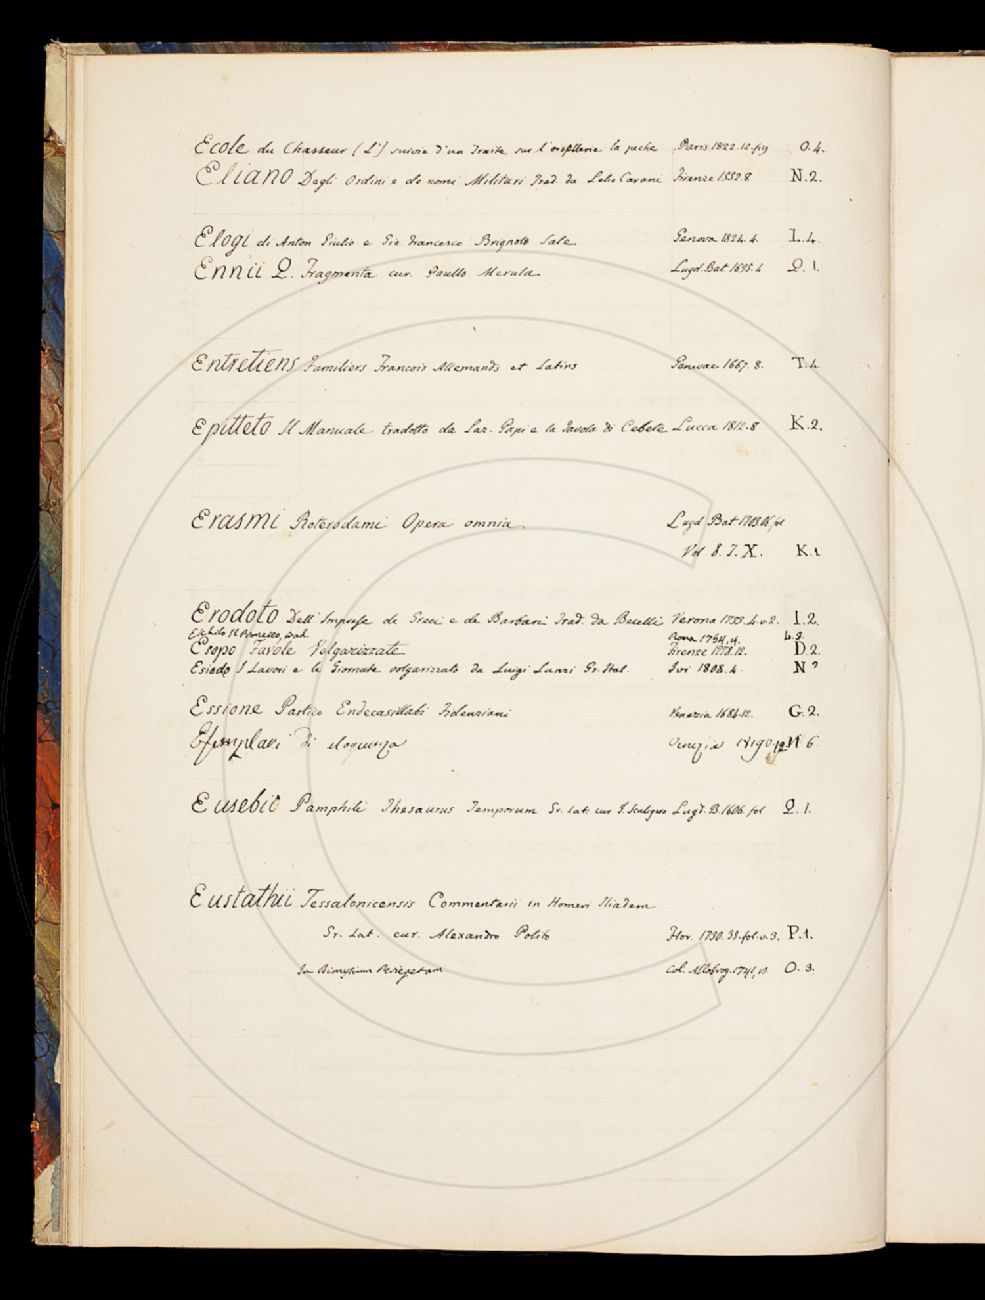 Ecole du Chasseur (L') suivie d'un Traite sur l'oisellerie la peche Paris 1822.12.fig O.4.
Eliano Degli Ordini e de nomi Militari Trad. da Lelio Carani Firenze 1552.8 N.2.
Elogi di Anton Giulio e Gio. Francesco Brignole Sale Genova 1824.4. L.4.
Ennii Q. Fragmenta cur. Paullo Merula Lugd. Bat 1695.4 Q.1.
Entretiens Familiers Francois Allemands et Latins Genevae 1667.8. T.4.
Epitteto Il Manuale tradotto da Laz. Papi e la Tavola di Cebete Lucca 1812.8 K.2.
Erasmi Roterodami Opera omnia Lugd. Bat 1703. fol
Vol 8.T.X. K.1.
Erodoto Dell' Imprese de Greci e de Barbari Trad. da Becelli Verona 1733.4.v.2. I.2.
Eschilo Il Prometeo, trad. Roma 1794,4. L.3.
Esopo Favole Volgarizzate Firenze 1778.12. D.2.
Esiodo I Lavori e le Giornate volgarizzato da Luigi Lanzi Gr. Ital. Ivi 1808.4. N ?
Essione Partico Endecasillabi Fidenziani Venezia 1684.12. G.2.
Esemplari di eloquenza Venezia N 6
Eusebio Pamphili Thesaurus Temporum Gr. Lat. cur I. Scaligero Lugd. B. 1606. fol Q.1.
Eustathii Tessalonicensis Commentarii in Homeri Iliadem
Gr. Lat. cur. Alexandro Polito Flor. 1730.35.fol.v.3. P.1.
In Dionysium Periegetam Col. Allobrog. 1741, O.3.